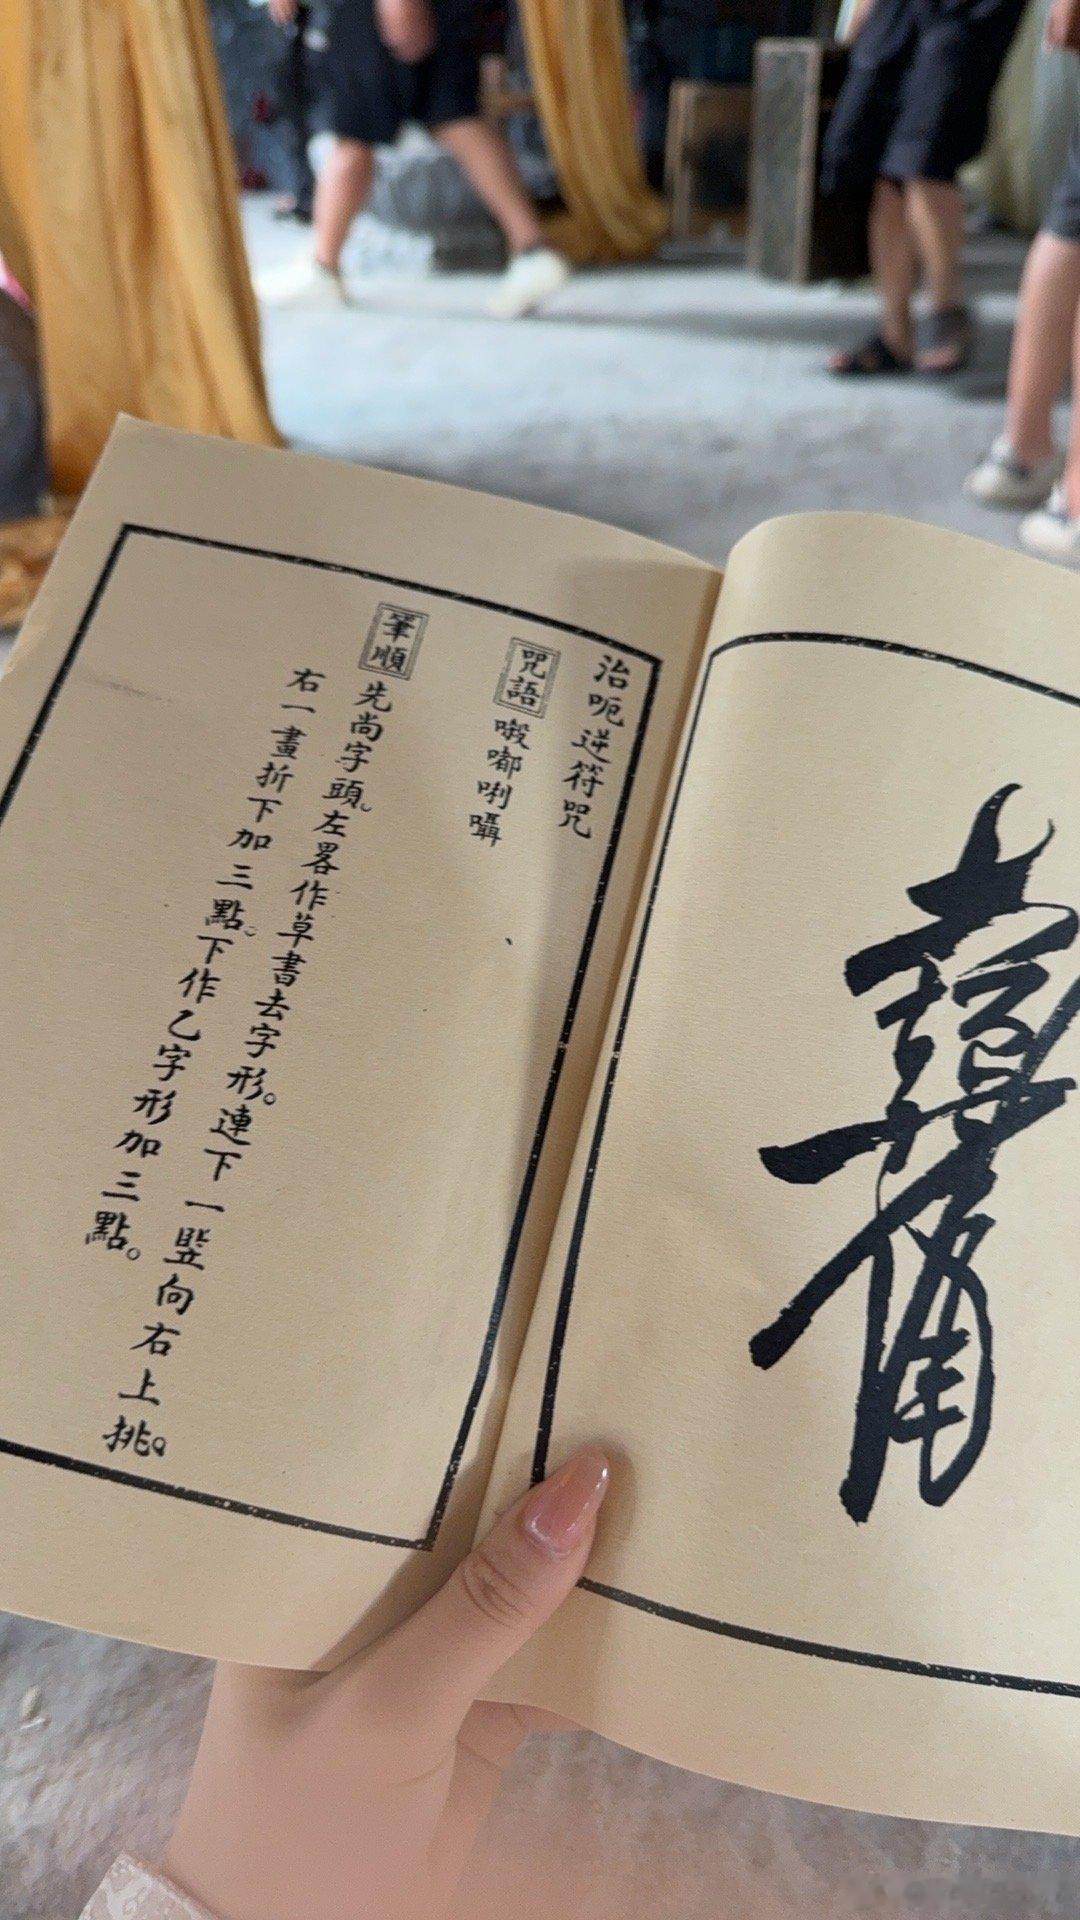 治呃逆符咒
咒語 啜嘟唎囁
筆順 先尚字頭。左畧作草書去字形。連下一竪向右上挑。
右一畫折下加三點。下作乙字形加三點。